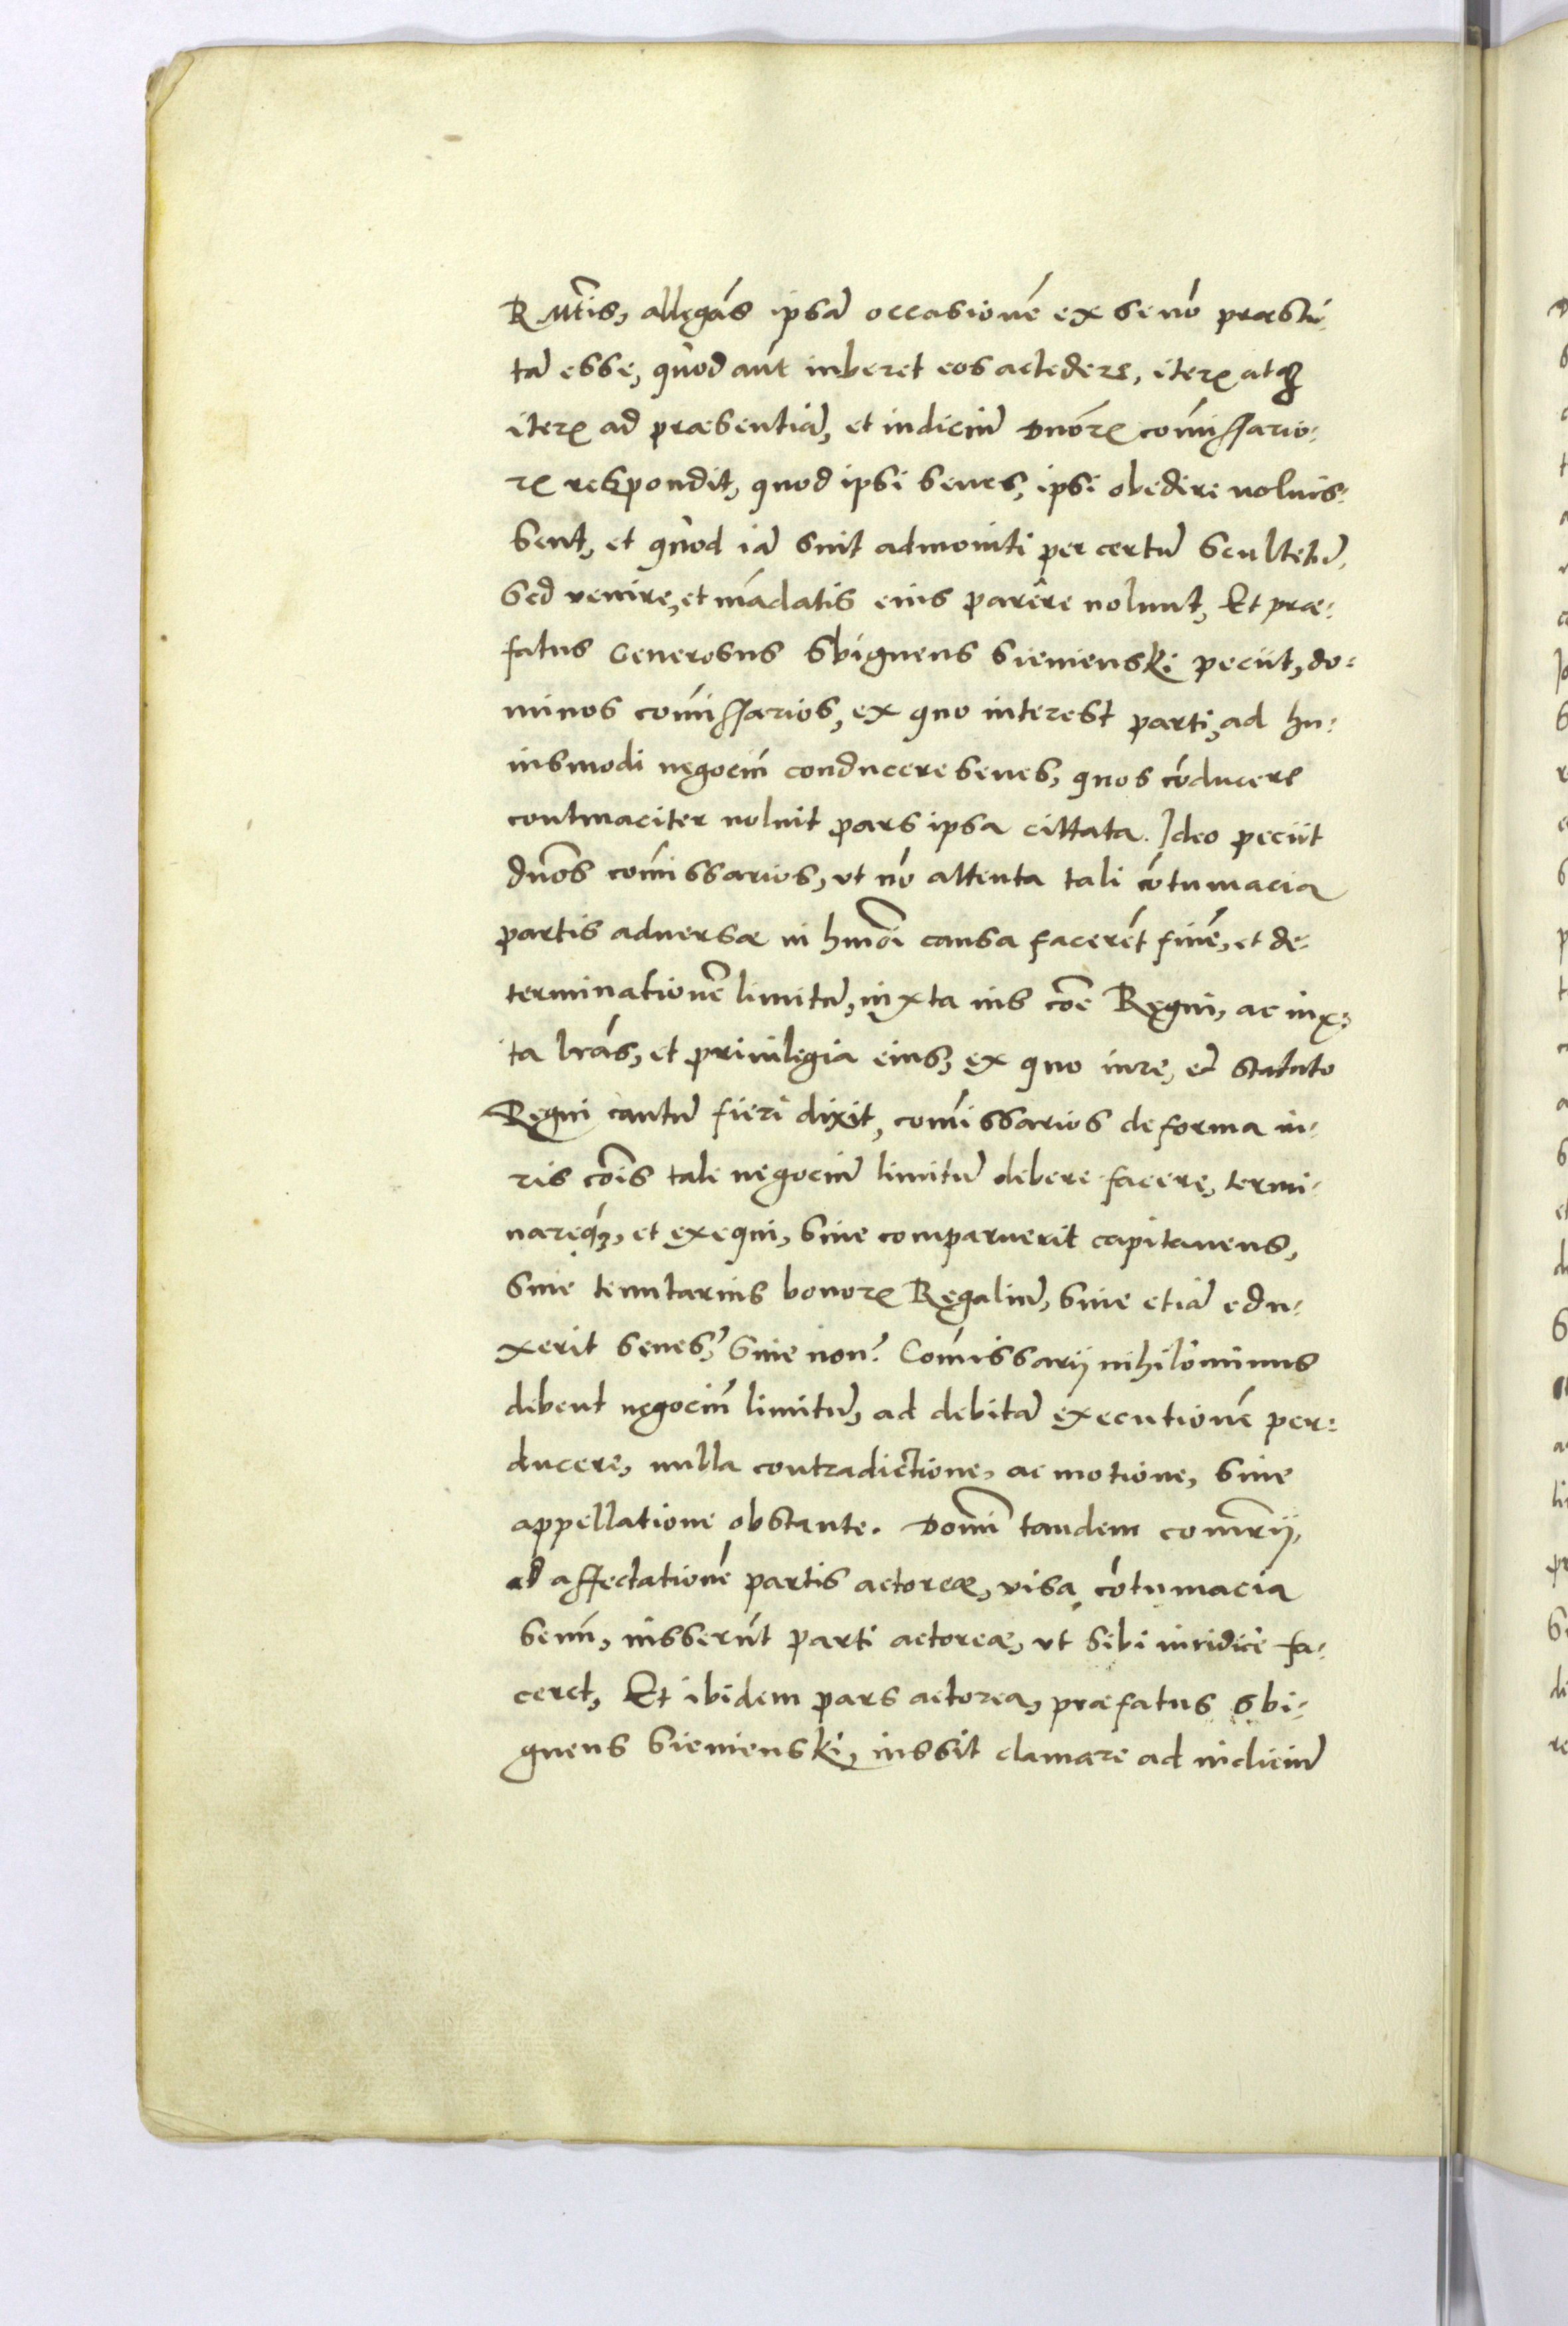 R Mtis, allęgās ipsā occasionē ex se nō præsti⸗
tā esse, quod aūt iuberet eos accedere, iteꝝ atqꝫ
iteꝝ ad præsentiā, et iudiciū dnōꝝ com̄issario⸗
ꝝ respondit, quod ipsi senes, ipsi obedire noluis⸗
sent, et quod iā sūt admoniti per certū scultetū,
sed venire, et mādatis eius parêre nolunt, Et præ⸗
fatus Generosus Sbigneus Sienienski peciit, do⸗
minos com̄issarios, ex quo interest parti, ad hu⸗
iusmodi nęgociū conducere senes, quos cōducere
contumaciter noluit pars ipsa cittata. Ideo peciit
dnōs com̄issarios, vt nō attenta tali cōtumacia
partis aduersæ in hmōi causa facerēt finē, et de⸗
terminationē limitū, iuxta ius cōe Ręgni, ac iux⸗
ta lrās, et priuilęgia eius, ex quo iure, et statuto
Ręgni cautū fieri dixit, com̄issarios de forma iu⸗
ris cōis tale nęgociū limitū debere facere, termi⸗
nareqꝫ, et exequi, siue comparuerit capitaneus,
siue tenutarius bonoꝝ Ręgaliū, siue etiā edu⸗
xerit senes, siue non? Com̄issarij nihilominus
debent nęgociū limitū, ad debitā executionē per⸗
ducere, nulla contradictione, ac motione, siue
appellatione obstante. Domī tandem comrīj,
ad affectationē partis actoreæ, visa cōtumacia
senū, iusserūt parti actoreæ, vt sibi iuridice fa⸗
ceret, Et ibidem pars actorea, præfatus Sbi⸗
gneus Sienienski, iussit clamare ad iudiciū